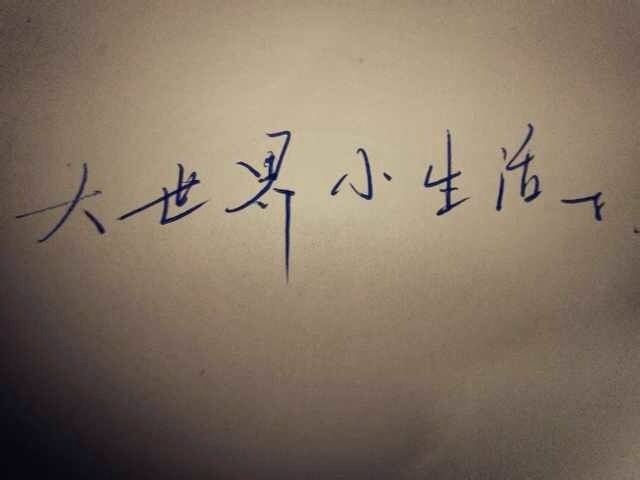 大世界小生活